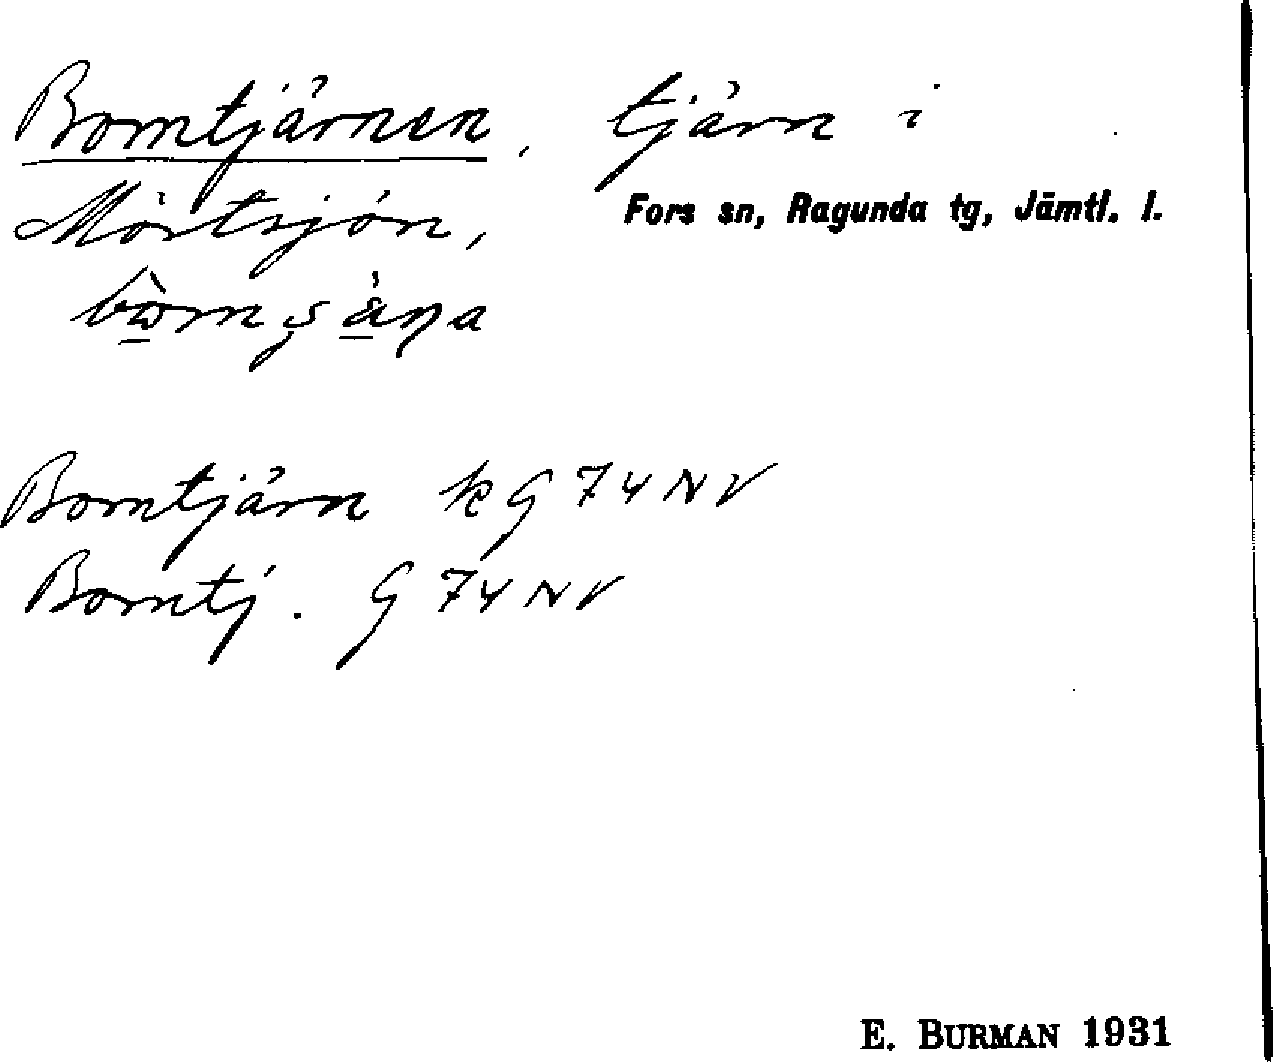 Bomtjärnen, tjärn i
Mörtsjön,
Fors sn, Ragunda tg, Jämtl. l.
Bomtjärn k G 74 NV
Bomtj. G 74 NV
E. BURMAN 1931